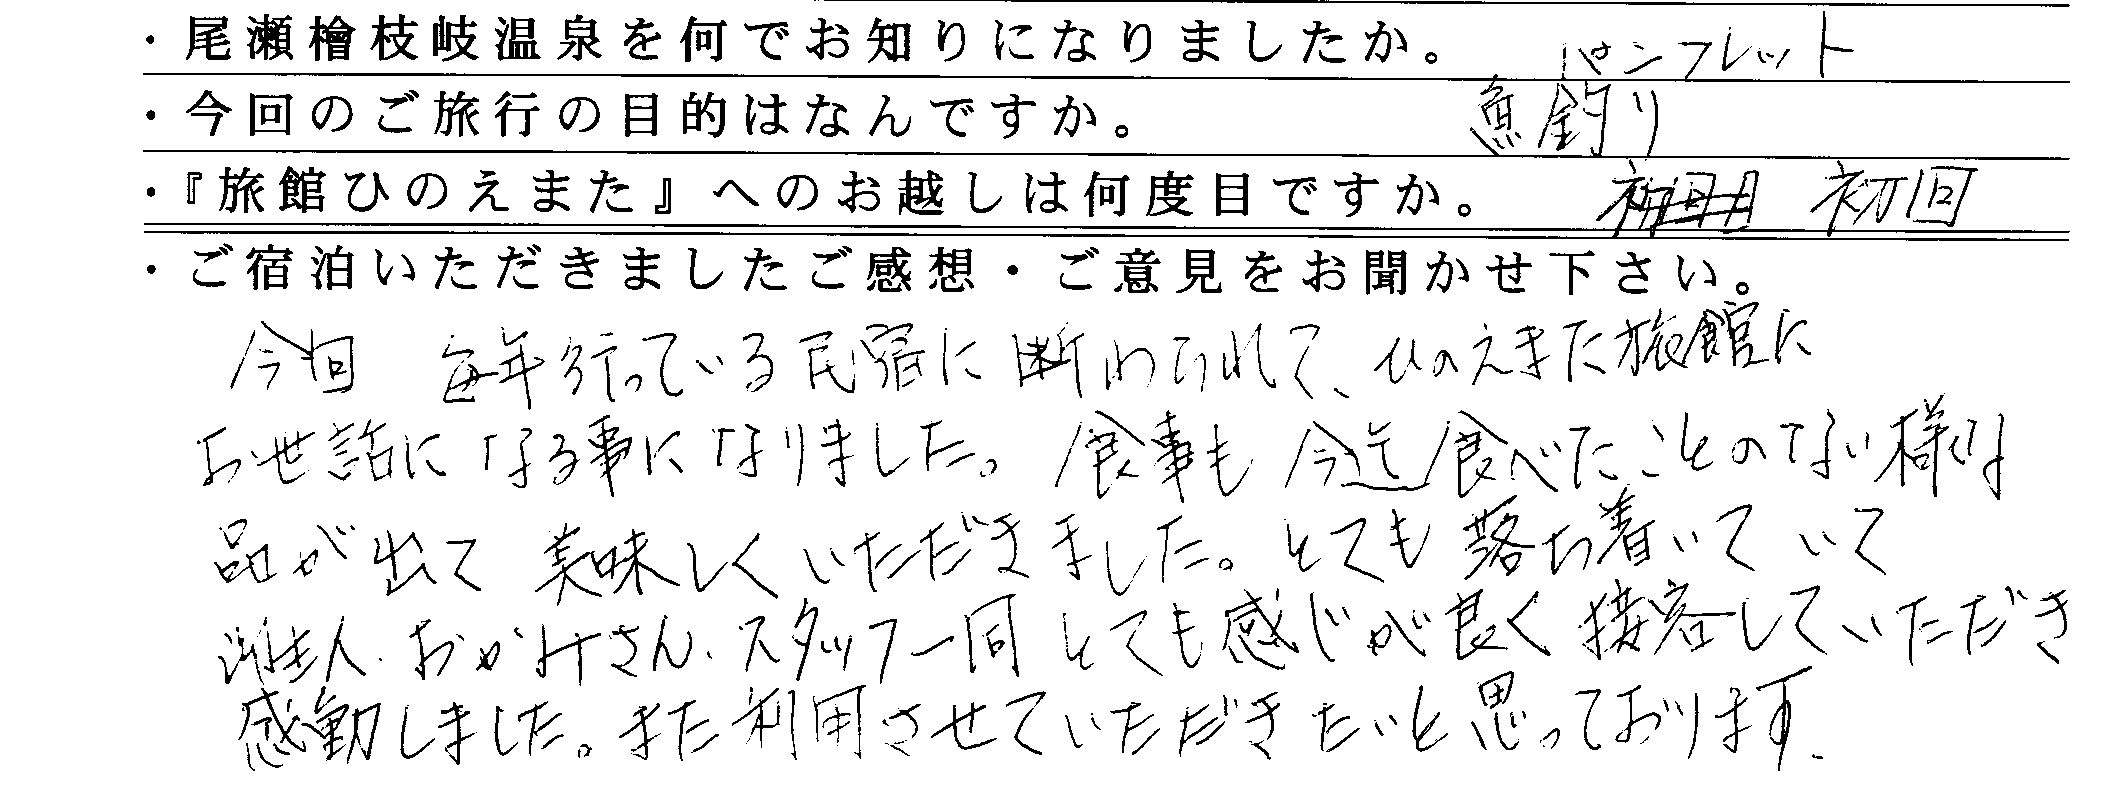 ・尾瀬檜枝岐温泉を何でお知りになりましたか。 パンフレット
・今回のご旅行の目的はなんですか。 魚釣り
・『旅館ひのえまた』へのお越しは何度目ですか。 初回
・ご宿泊いただきましたご感想・ご意見をお聞かせ下さい。
今回 毎年行っている民宿に断わられて、ひのえまた旅館に
お世話になる事になりました。食事も今迄食べたことのない様な
品が出て美味しくいただきました。とても落ち着いていて
人、おかみさん、スタッフ一同とても感じが良く接客していただき
感動しました。また利用させていただきたいと思っております。